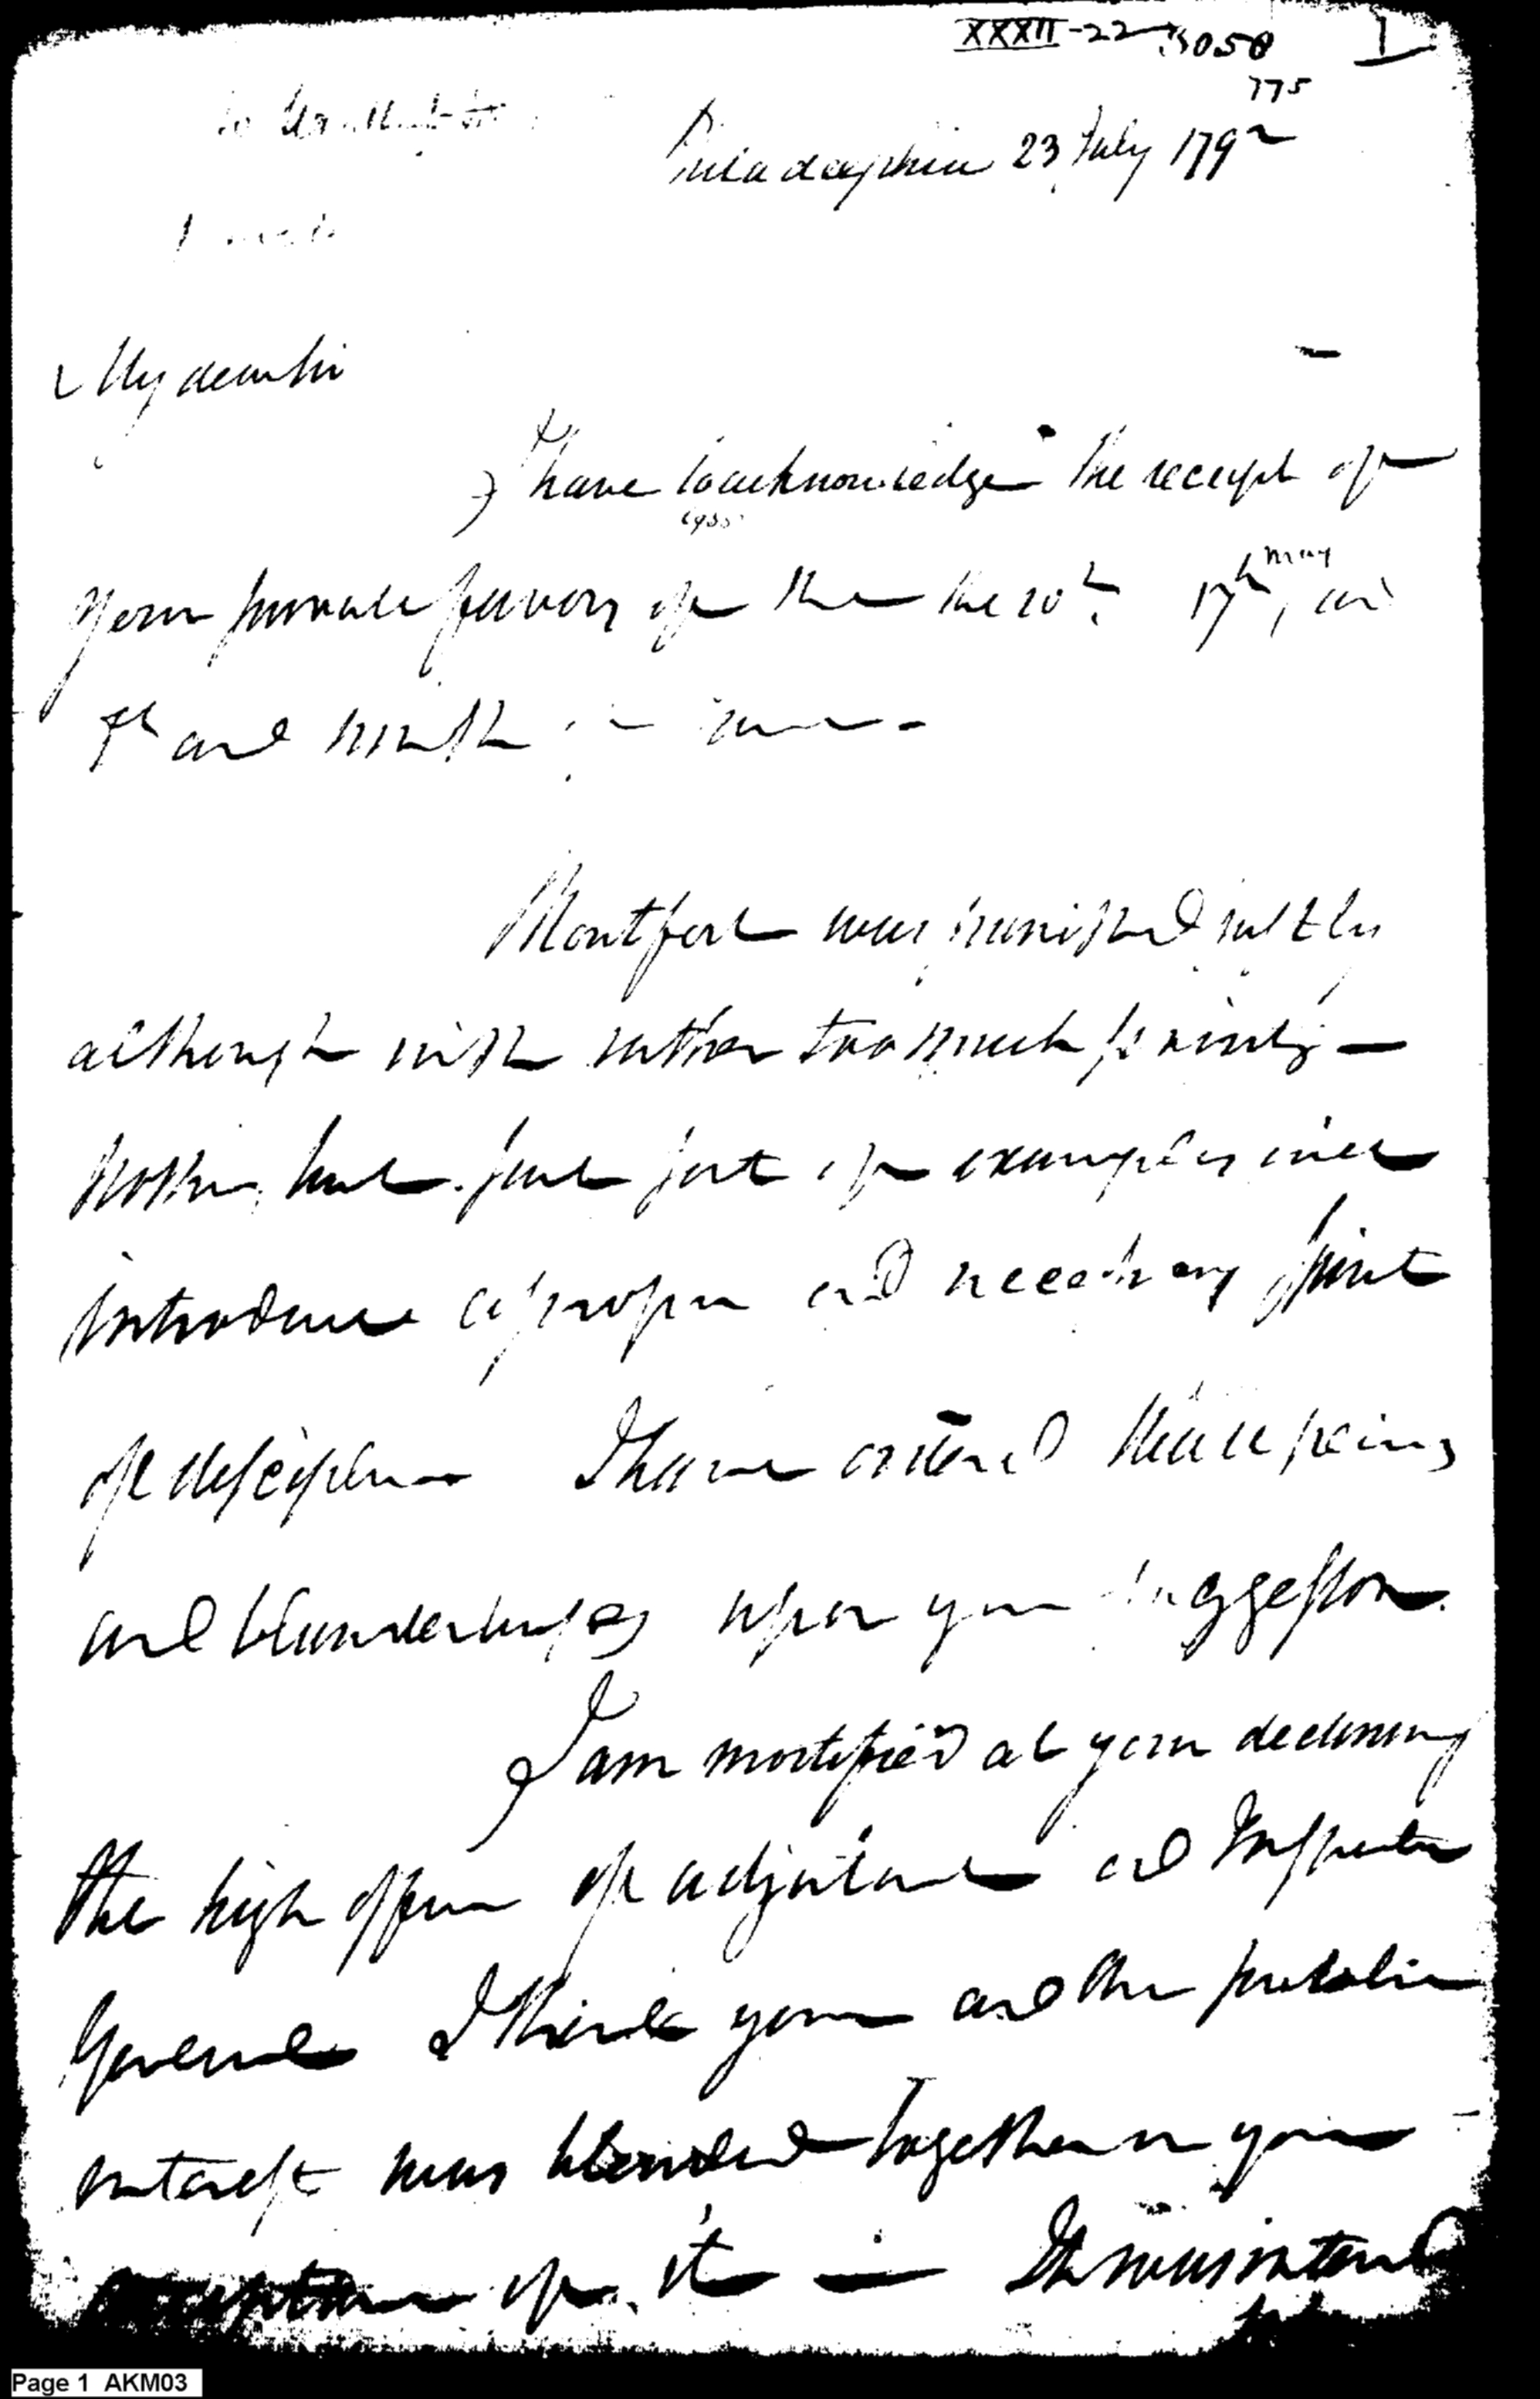 XXXII-22 5058 I
775
Philadelphia 23 July 1792
My dear sir
I have to acknowledge the receipt of
your private favors of the the 10th 17th may, and
7th and ninth of June
Montfort was punished justly
although with rather too much
but just sort of examples will
introduce a proper and necessary spirit
of discipline I have ordered these
and blunderbusses upon your suggestion.
I am mortified at your declining
the high office of adjutant and Inspector
General I think yours and the public
interest was blended together in your
acceptance of it — It was intend
Page 1 AKM03